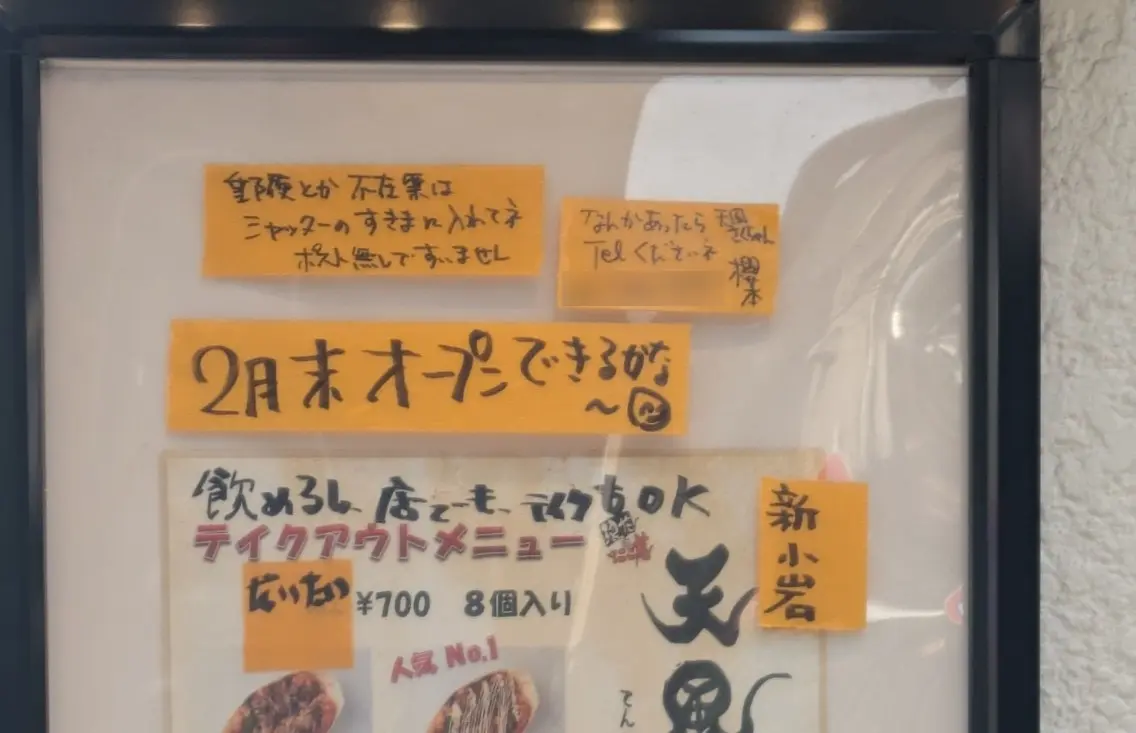 郵便とか 不在票は
シャッターのすきまに入れてネ
ポスト無しですいません
なんかあったら
Telくださいネ
櫻本
2月末オープンできるかな
〜
飲めるし、店でも、テイクもOK
テイクアウトメニュー
だいたい ¥700 8個入り
人気 No.1
新小岩
天
てん